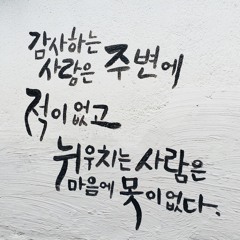 감사하는
사람은 주변에
적이 없고
뉘우치는 사람은
마음에 못이 없다.